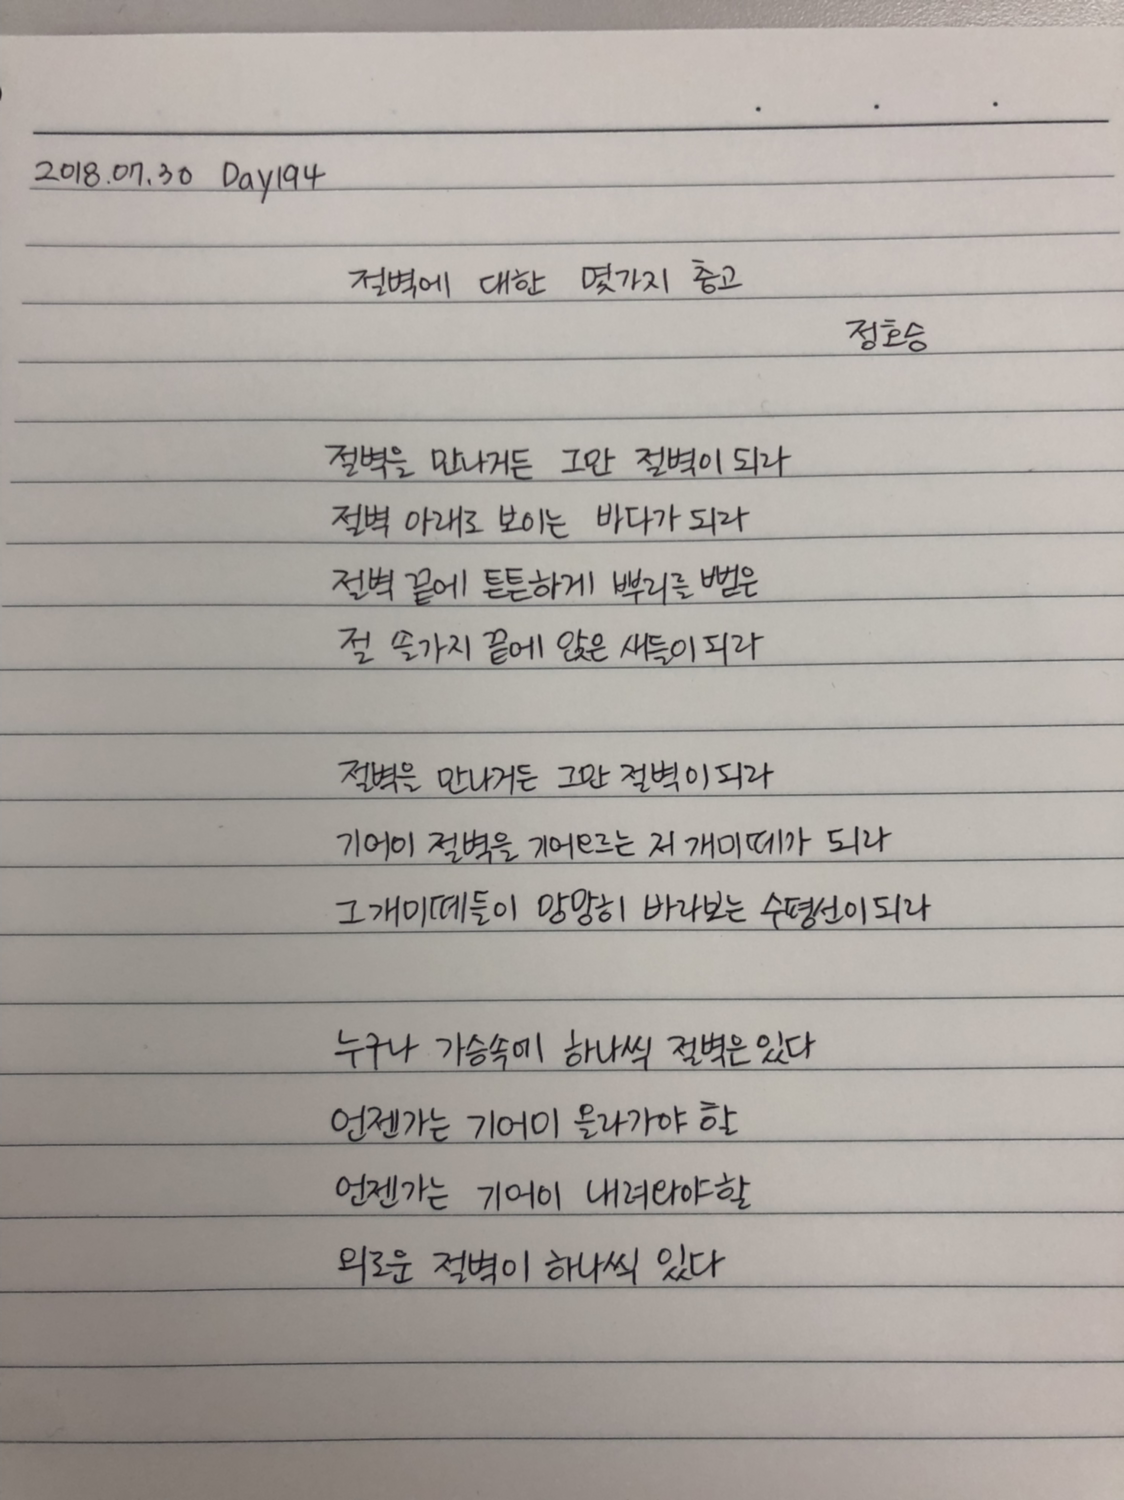 2018.07.30 Day194
절벽에 대한 몇가지 충고
정호승
절벽을 만나거든 그만 절벽이 되라
절벽 아래로 보이는 바다가 되라
절벽 끝에 튼튼하게 뿌리를 뻗은
절 솔가지 끝에 앉은 새들이 되라
절벽을 만나거든 그만 절벽이 되라
기어이 절벽을 기어오르는 저 개미떼가 되라
그 개미떼들이 망망히 바라보는 수평선이 되라
누구나 가슴속에 하나씩 절벽은 있다
언젠가는 기어이 올라가야 할
언젠가는 기어이 내려와야 할
외로운 절벽이 하나씩 있다